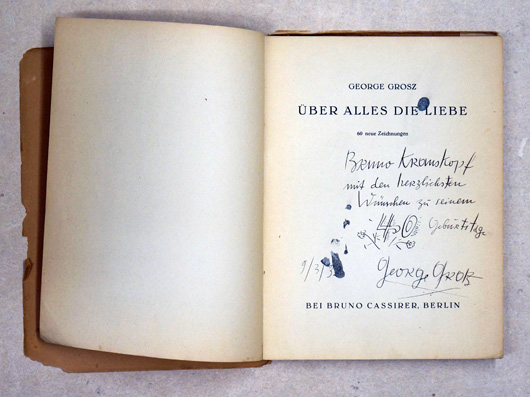 GEORGE GROSZ
ÜBER ALLES DIE LIEBE
60 neue Zeichnungen
Bruno Krauskopf
mit den herzlichsten
Wünschen zu seinem
Geburtstage
George Grosz
BEI BRUNO CASSIRER, BERLIN